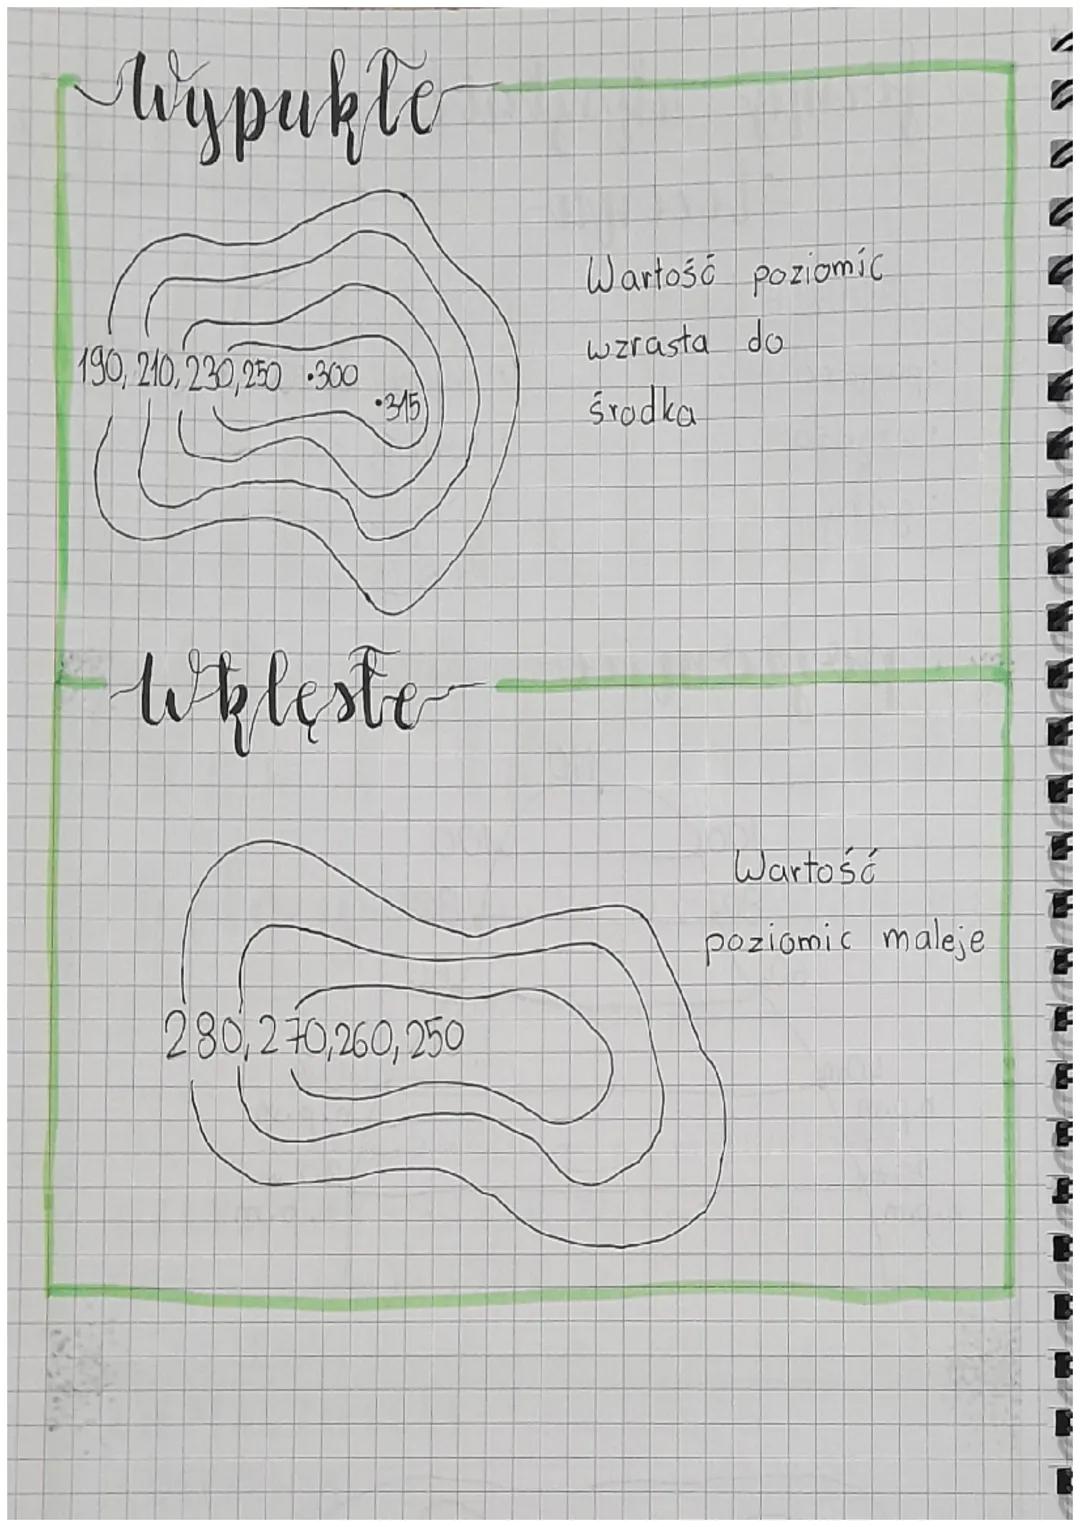 Wypukłe
Wartość poziomic
wzrasta do
środka
190, 210, 230, 250 •300
•315
Wklęsłe
Wartość
poziomic maleje
280, 270, 260, 250